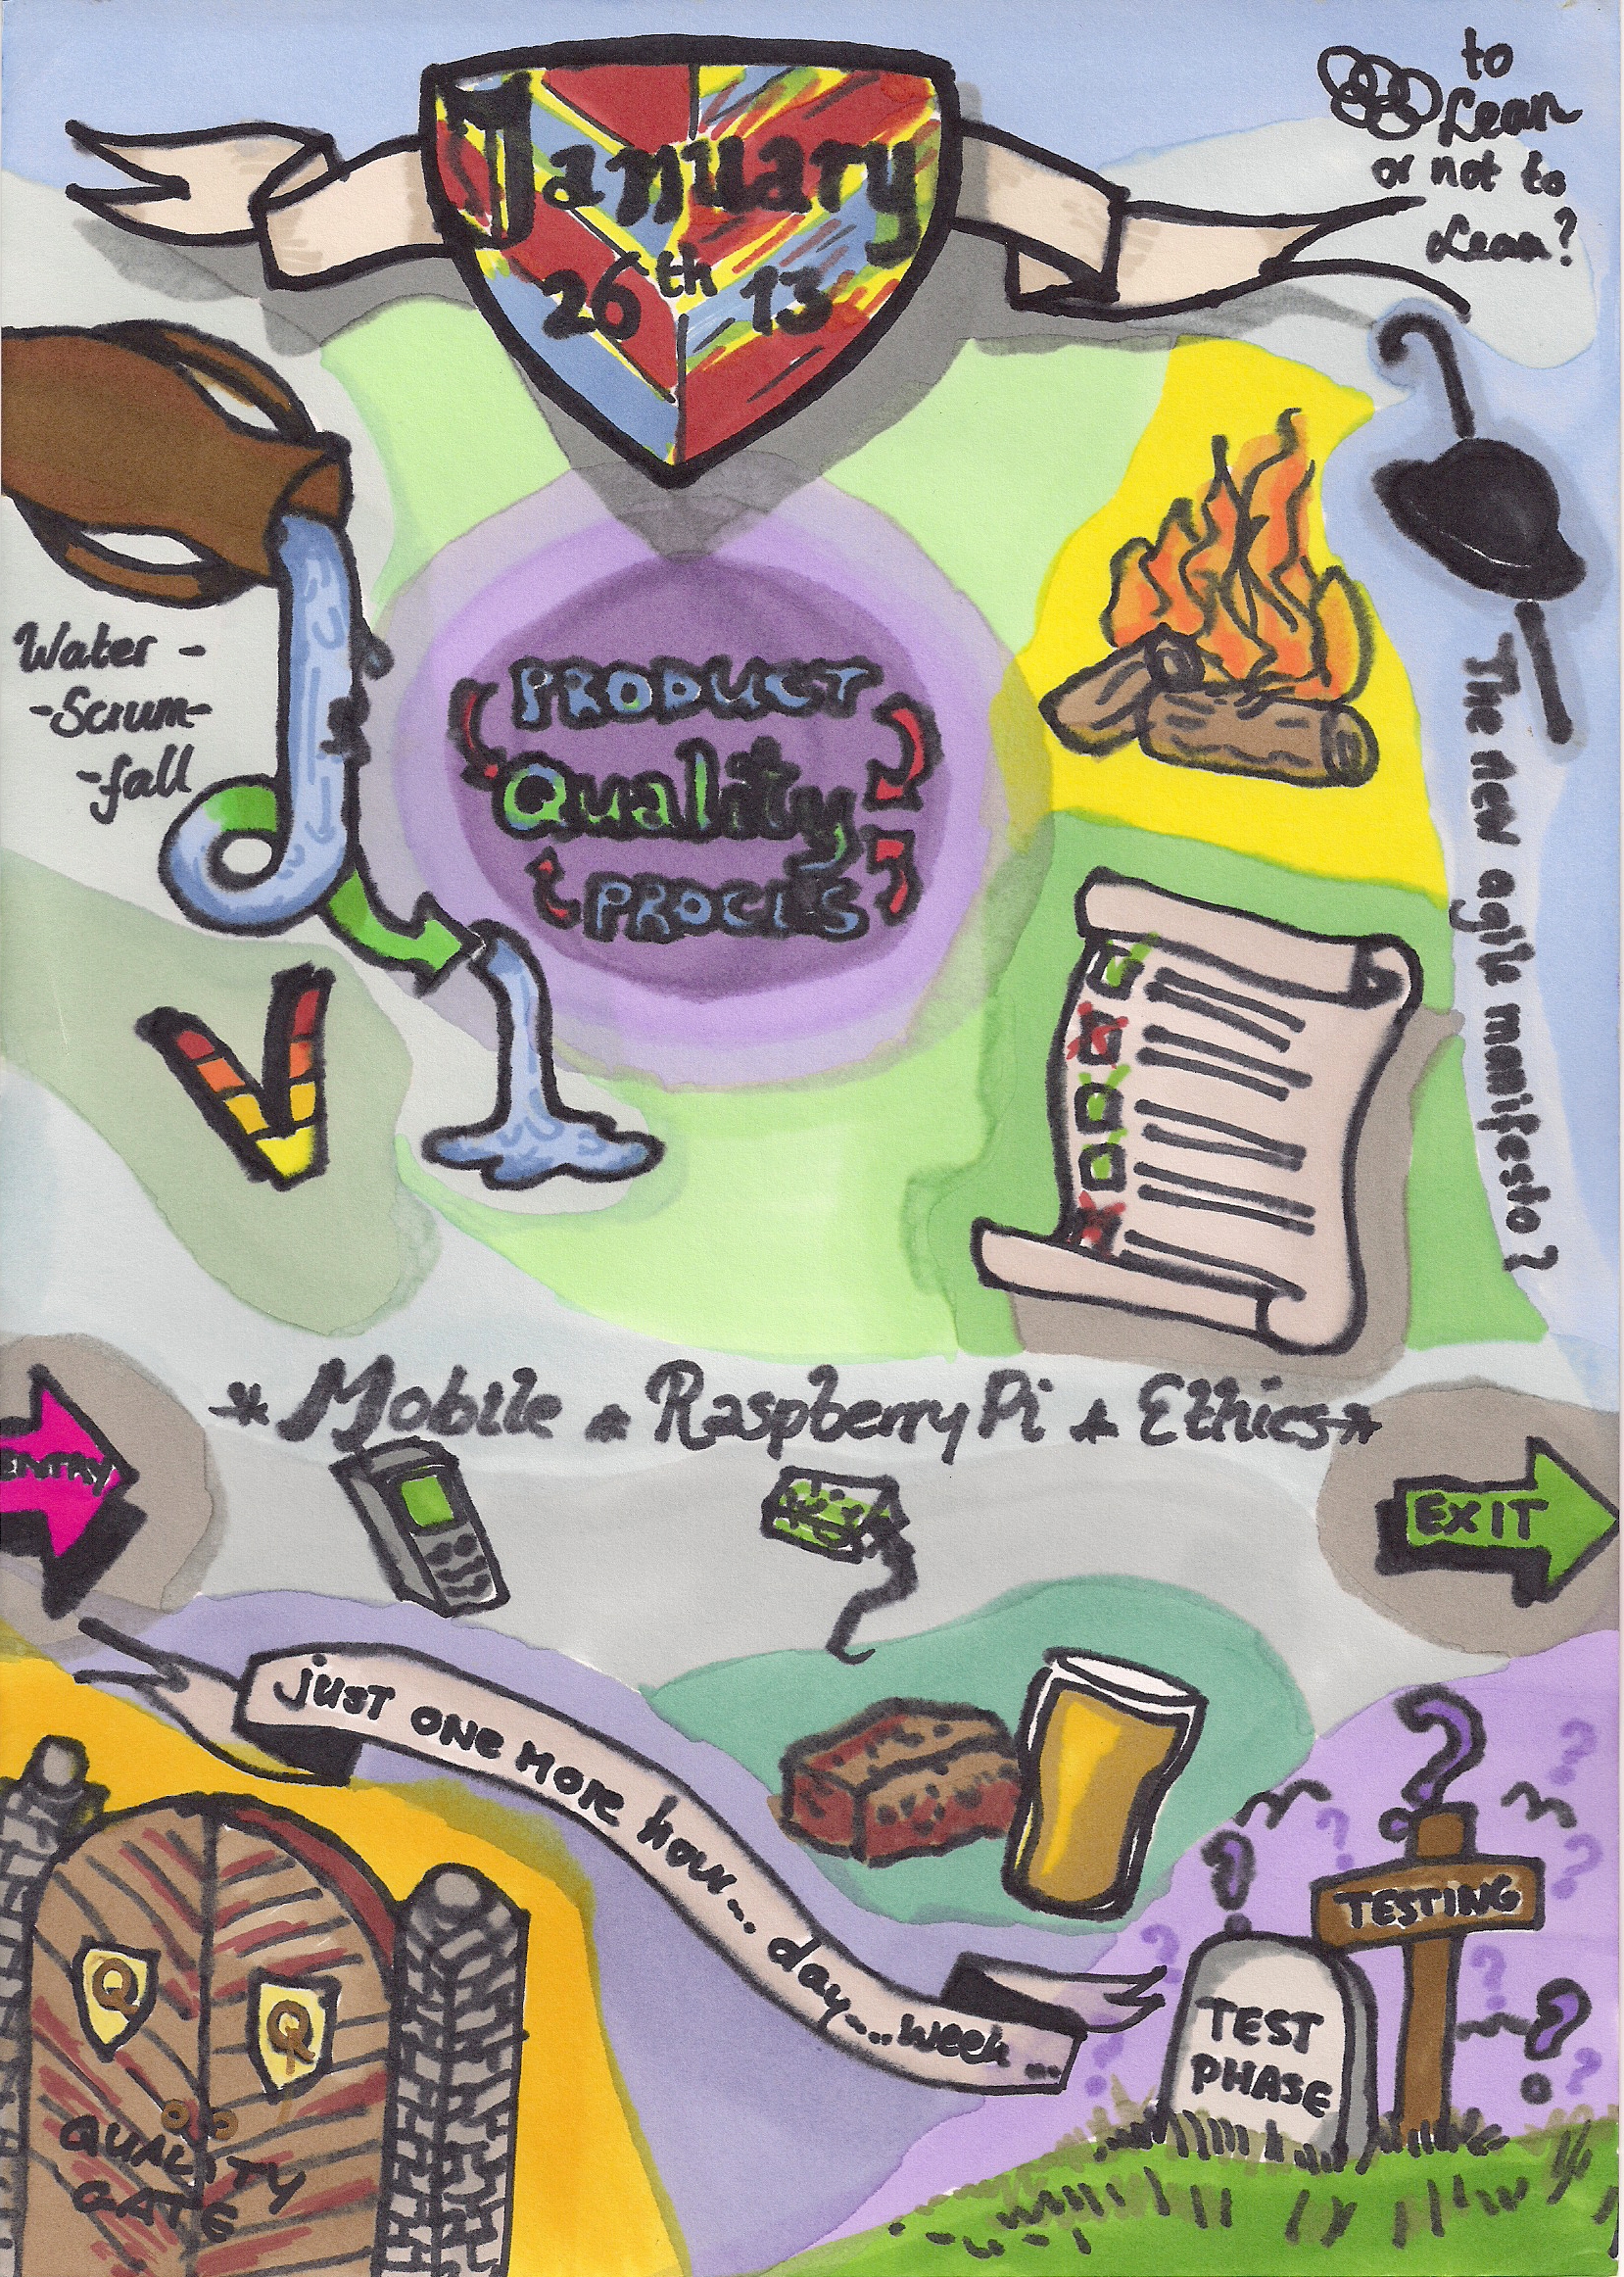 January
26th 13
to
Lean
or not to
Lean?
Water -
-Scrum-
-fall
PRODUCT
Quality
PROCES
The new agile manifesto?
* Mobile * Raspberry Pi * Ethics *
ENTRY
EXIT
just one more hour... day... week...
TESTING
TEST
PHASE
Q
Q
QUALITY
GATE